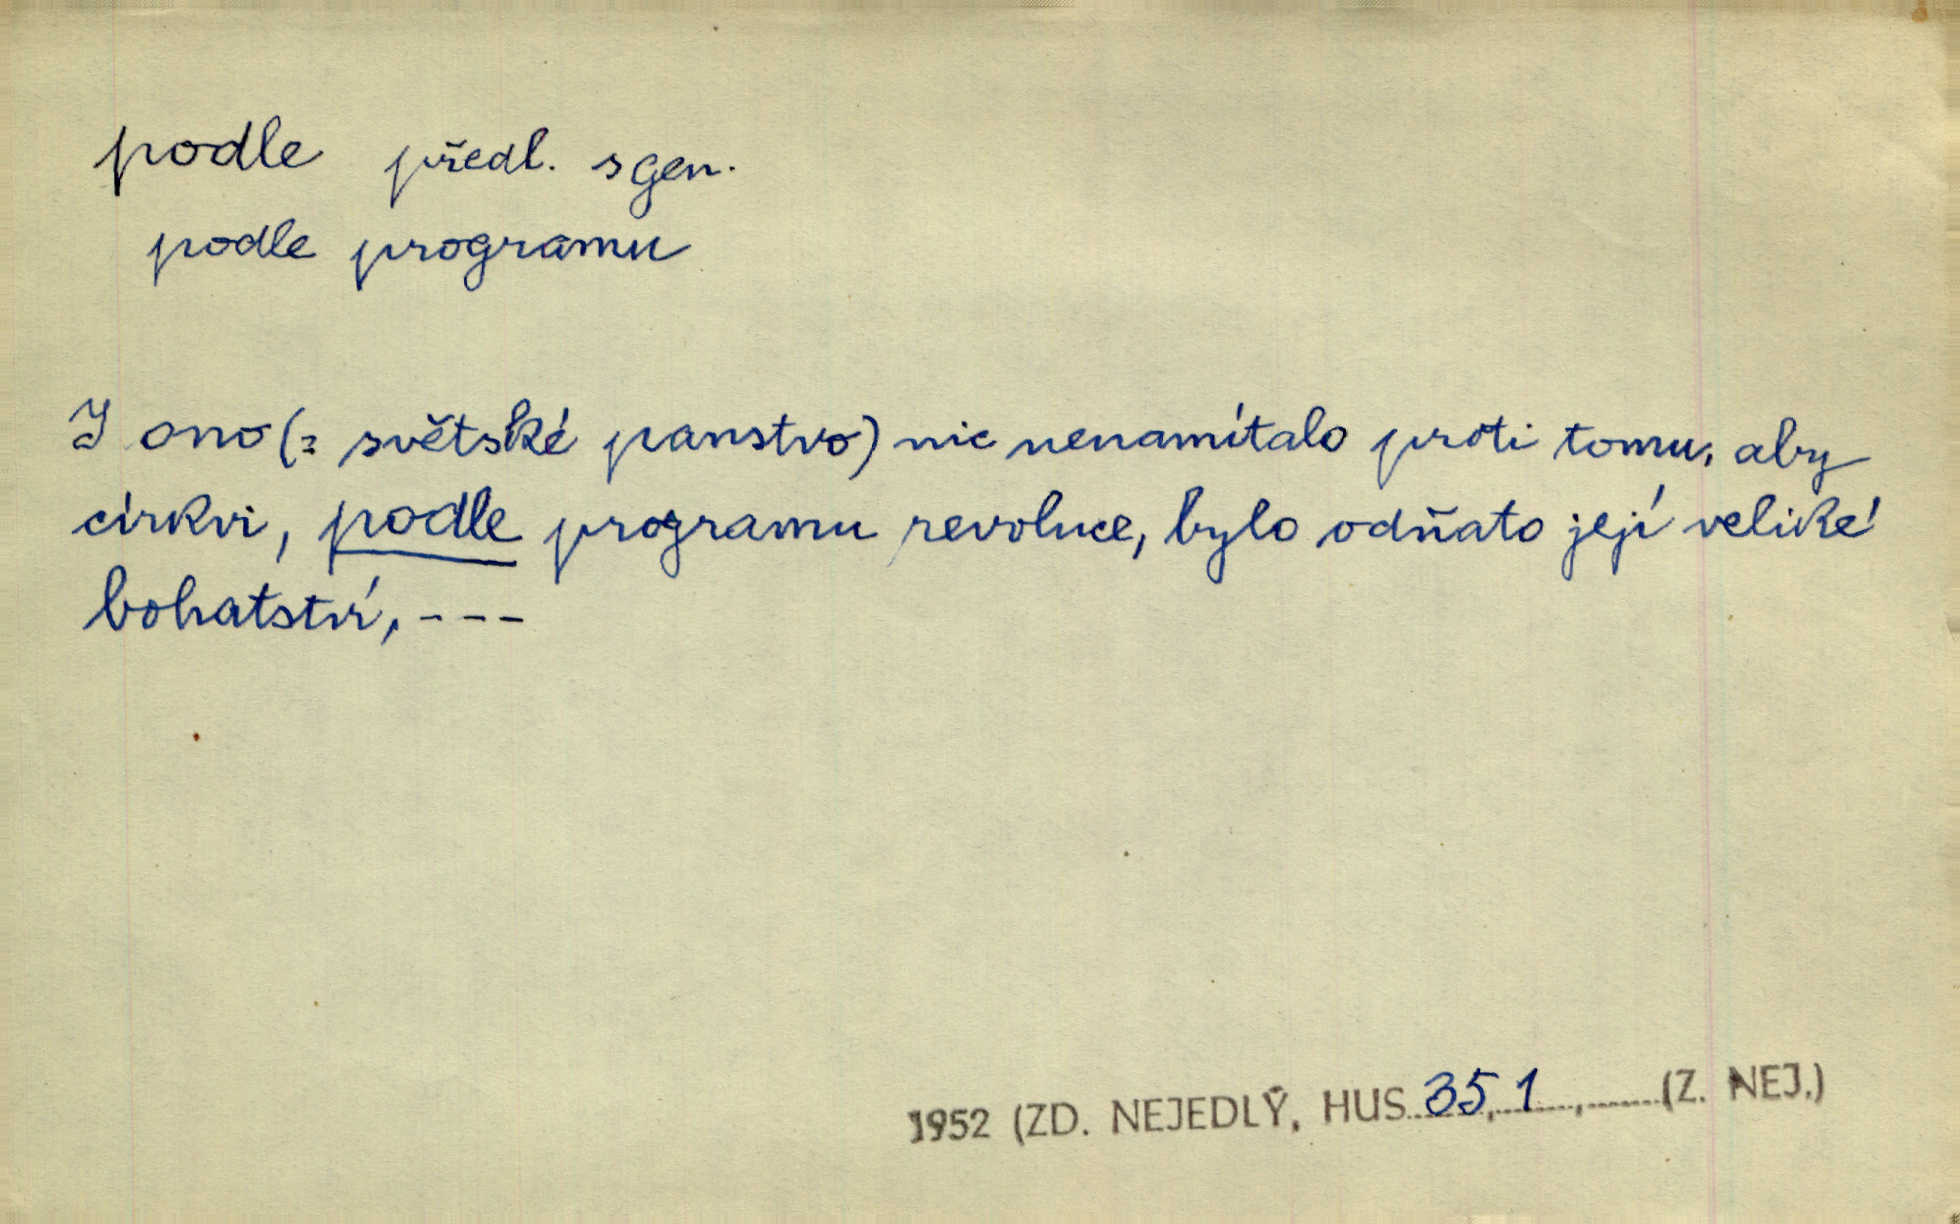 podle předl. s gen.
podle programu
I ono (= světské panstvo) nic nenamítalo proti tomu, aby
církvi, podle programu revoluce, bylo odňato její veliké
bohatství, ---
1952 (ZD. NEJEDLÝ, HUS 35, 1, (Z. NEJ.)